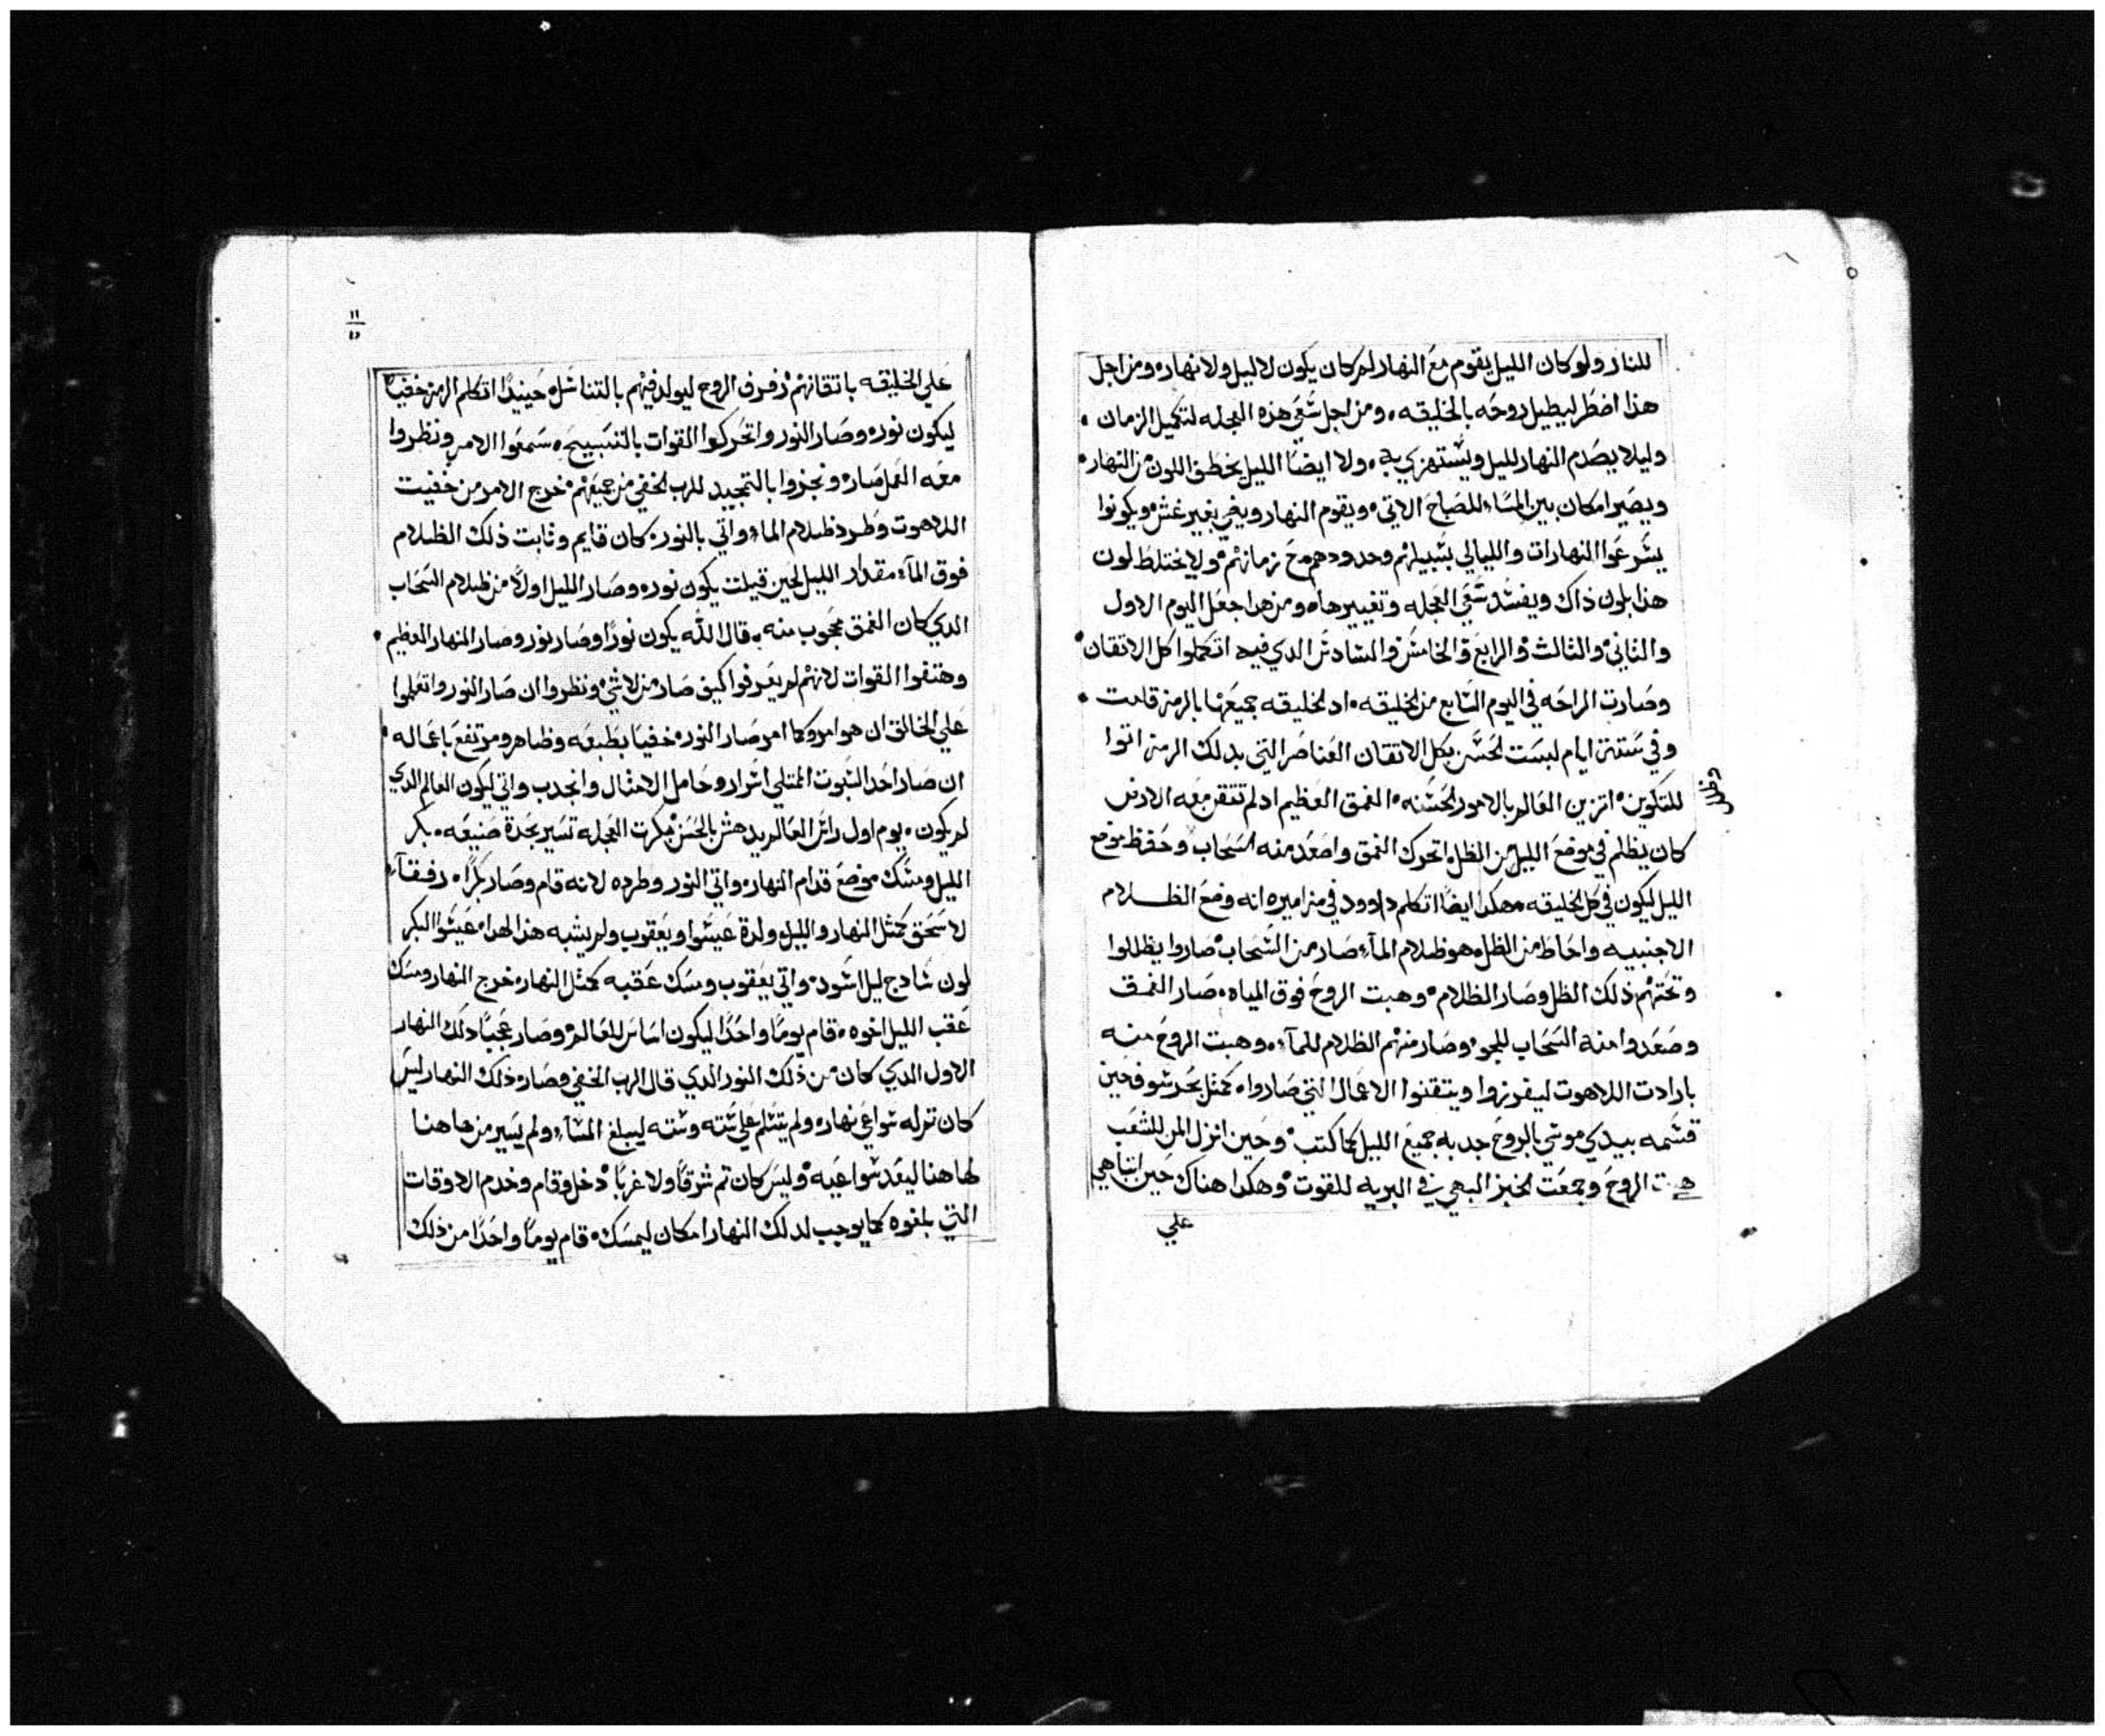 للنار ولو كان الليل يقوم مع النهار لم كان يكون لا ليل ولا نهار ومن اجل
هذا اضطر ليطيل روحه بالخليقه ومن اجل شقي هذه العجله لتكميل الزمان
وليلا يصدم النهار لليل ويستهزي به ولا ايضا الليل يخطف اللون من النهار
ويصير امكان بين المسا للصباح الاتي ويقوم النهار ويغي بغير غش ويكونوا
يسرعوا النهارات والليالي بسبيلهم وحدودهم مع زمانهم ولا يختلط لون
هذا بلون ذاك ويفسد شقي العجله وتغييرها ومن هدا جعل اليوم الاول
والثاني والثالث والرابع والخامس والسادس الدي فيه اتكملوا كل الاتقان
وصارت الراحه في اليوم السابع من الخليقه اد الخليقه جميعها بالرمز قامت
وفي ستة ايام لبست الحسن بكل الاتقان العناصر التي بدلك الرمز اتوا
للتكوين اتزين العالم بالامور الحسنه الغمق العظيم اد لم تتقن معه الارض
كان يظلم في موضع الليل من الظل اتحرك الغمق واصعد منه السحاب وحفظ موضع
الليل ليكون في كل الخليقه هكدا ايضا اتكلم داوود في مزاميره انه وضع الظلام
الاجنبيه واحاط من الظل هو ظلام المآء صار من السحاب صاروا يظللوا
وتحتهم ذلك الظل وصار الظلام وهبت الروح فوق المياه صار الغمق
وصعدوا منه السحاب للجو وصار منهم الظلام للمآء وهبت الروح منه
بارادت اللاهوت ليفرزوا ويتقنوا الاعمال التي صاروا كمثل بحر سوف حين
قسمه بيدي موسي بالروح جد به جميع الليل كما كتب وحين انزل المن للشعب
هبت الروح وجمعت الخبز البهي في البريه للقوت وهكدا هناك حين
علي
١١
علي الخليقه باتقانهم رفرف الروح ليولد فيهم بالتناسل حينيدا اتكلم الرمز خفيا
ليكون نور وصار النور واتحركوا القوات بالتسبيح سمعوا الامر ونظروا
معه العمل صار ونجزوا بالتمجيد للرب الخفي من جميعهم خرج الامر من خفيت
اللاهوت وطرد ظلام الما واتي بالنور كان قايم وثابت ذلك الظلام
فوق المآء مقدار الليل لحين قيلت يكون نور وصار الليل اولا من ظلام السحاب
الدي كان الغمق محجوب منه قال الله يكون نورا وصار نور وصار النهار العظيم
وهتفوا القوات لانهم لم يعرفوا كيف صار من لا شي ونظروا ان صار النور واتعلموا
علي الخالق ان هو امر وكما امر صار النور خفيا بطبعه وظاهر ومرتفع باعماله
ان صار احد الثبوت الممتلي اسرار وحامل الامثال وانجدب واتي ليكون العالم الدي
لم يكون يوم اول راس العالم يدهش بالحسن بكرت العجله تسير بجدة صنيعه بكر
الليل ومسك موضع قدام النهار واتي النور وطرده لانه قام وصار بكرا رفقآء
لاسحق كمثل النهار والليل ولدة عيسوا ويعقوب ولم يشبه هذا لهدا عيسوا البكر
لون سادج ليل اسود واتي يعقوب ومسك عقبه كمثل النهار خرج النهار ومسك
عقب الليل اخوه قام يوما واحدا ليكون اساس للعالم وصار عجبا دلك النهار
الاول الدي كان من ذلك النور الدي قال الرب الخفي وصار ذلك النهار ليس
كان تم له سواعي نهار ولم يتسلم علي سته وسته ليبلغ المسآء ولم يسير من هاهنا
لهاهنا ليعد سواعيه وليس كان تم شرقا ولا غربا دخل وقام وخدم الاوقات
التي بلغوه كما يوجب لدلك النهار امكان ليمسك قام يوما واحدا من ذلك